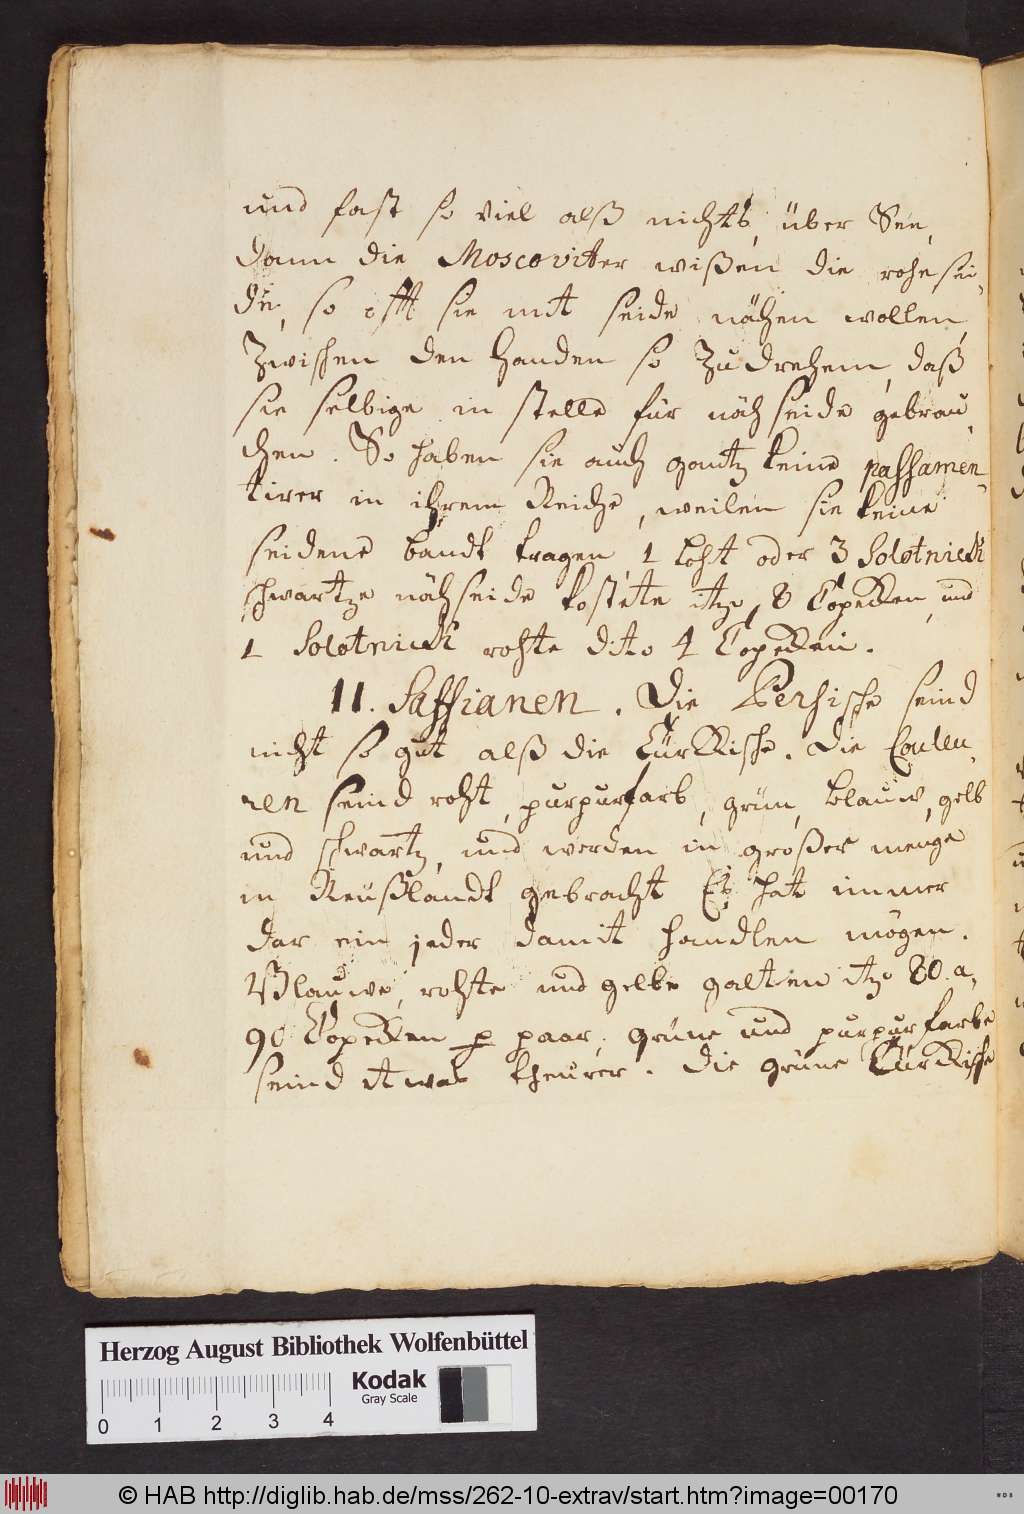 und fast so viel alß nichts, über See,
dann die Moscoviter wißen die rohe sei-
de, so offt sie mit seide nähen wollen,
zwischen den Handen so zudrehem, daß
sie selbige in stelle für nähseide gebrau-
chen. So haben sie auch gantz keine passamen-
tirer in ihrem Reiche, weilen sie keine
seidene bandt tragen, 1 Loht oder 3 Solotnick
schwartze nähseide kostete itzo 8 Copecken, und
1 Solotnick rohte dito 4 Copecken.
11. Saffianen. Die Persische seind
nicht so gut alß die Türckische. Die Couleu-
ren seind roht, purpurfarb, grün, blauw, gelb
und schwartz, und werden in großer menge
in Reußlandt gebracht Es hat immer
dar ein jeder damit handlen mögen.
Blauwe, rohte und gelbe galten itzo 80 a
90 Copecken p paar, grüne und purpurfarbe
seind etwas theurer. Die grüne Türckische
Herzog August Bibliothek Wolfenbüttel
Kodak
Gray Scale
0 1 2 3 4
© HAB http://diglib.hab.de/mss/262-10-extrav/start.htm?image=00170